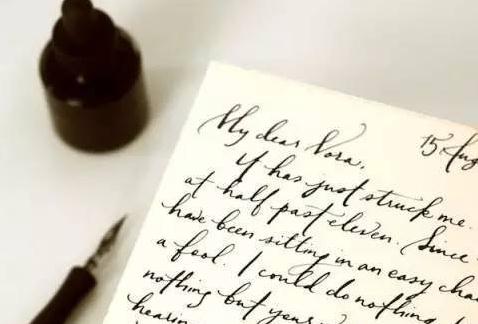 15 Aug
My dear Nora,
It has just struck me.
at half past eleven. Since
have been sitting in an easy cha
a fool. I could do nothing
nothing but your
hearin